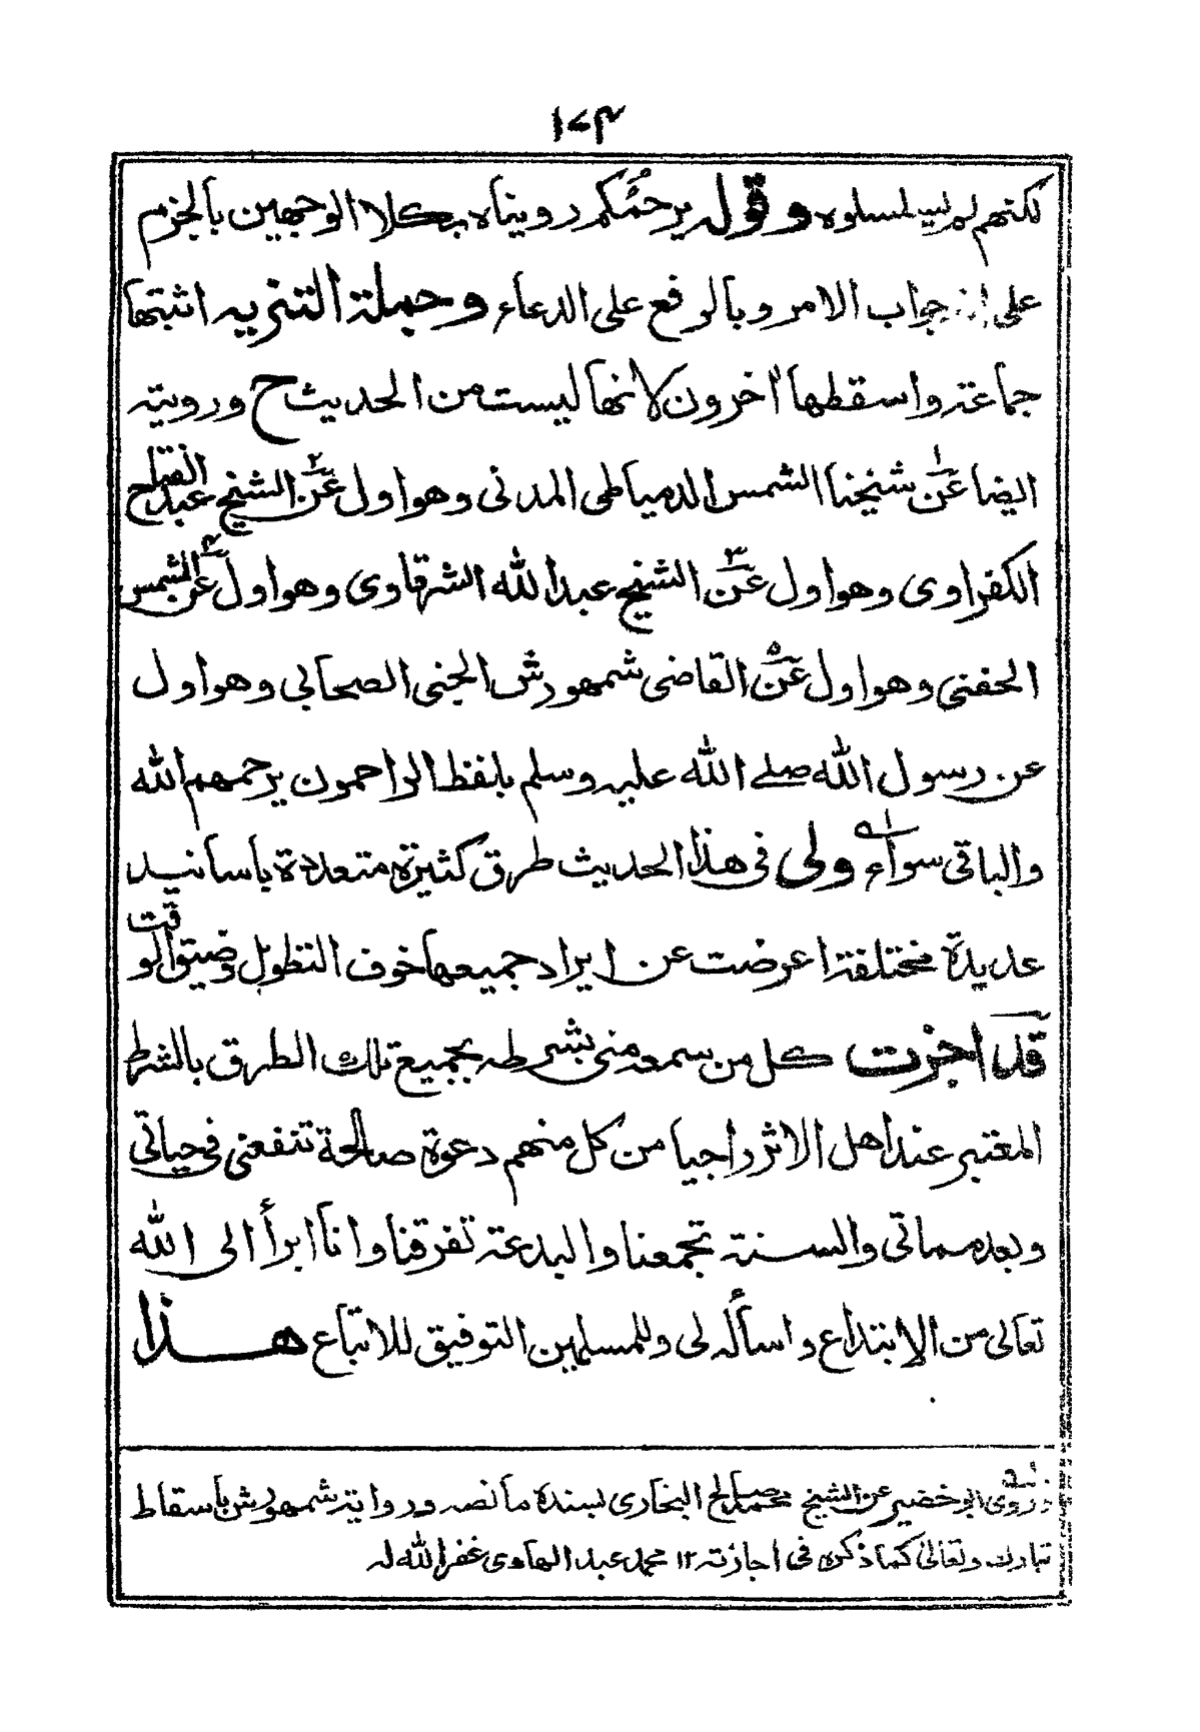 ١٧٣
لكنهم لم يسلسلوه وقوله يرحمكم رويناه بكلا الوجهين بالجزم
على انه جواب الامر وبالرفع على الدعاء وجملة التنزيه اثبتها
جماعة واسقطها اخرون لانها ليست من الحديث ح ورويته
ايضا عن١ شيخنا الشمس الدمياطى المدنى وهو اول عن٢ الشيخ عبد الفتاح
الكفراوى وهو اول عن٣ الشيخ عبد الله الشرقاوى وهو اول عن٤ الشمس
الحفنى وهو اول عن٥ القاضى شمهورش الجنى الصحابى وهو اول
عن رسول الله صلے الله عليه وسلم بلفظ الراحمون يرحمهم الله
والباقى سواء ولى فى هذا الحديث طرق كثيرة متعددة بأسانيد
عديدة مختلفة اعرضت عن ايراد جميعها خوف التطويل وضيق الوقت
قد اجزت كل من سمعه منى بشرطه بجميع تلك الطرق بالشرط
المعتبر عند اهل الاثر راجيا من كل منهم دعوة صالحة تنفعنى فى حياتى
وبعد مماتى والسنة تجمعنا والبدعة تفرقنا وانا ابرأ الى الله
تعالى من الابتداع واسأله لى وللمسلمين التوفيق للاتباع هذا
وروى ابو خضير عن الشيخ محمد صالح البخارى بسنده ما نصه ورواية شمهورش بأسقاط
تبارك وتعالى كما ذكره فى اجازته ١٢ محمد عبد الهادى غفر الله له